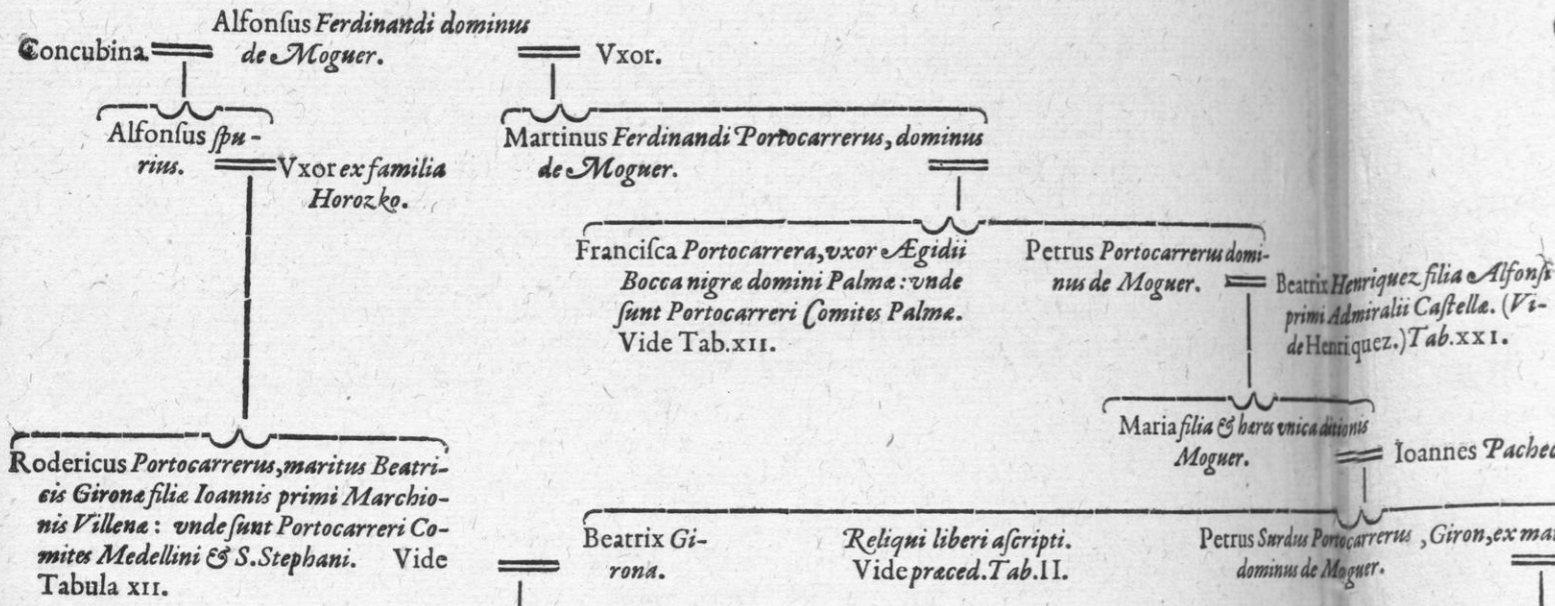 Concubina.
Alfonſus Ferdinandi dominus
de Moguer.
Vxor.
Alfonſus ſpu-
rius.
Vxor ex familia
Horozko.
Martinus Ferdinandi Portocarrerus, dominus
de Moguer.
Franciſca Portocarrera, vxor Ægidii
Bocca nigræ domini Palmæ: vnde
ſunt Portocarreri Comites Palmæ.
Vide Tab.XII.
Petrus Portocarrerus domi-
nus de Moguer.
Beatrix Henriquez filia Alfonſi
primi Admiralii Caſtellæ. (Vi-
de Henriquez.) Tab.XXI.
Maria filia & hæres vnica ditionis
Moguer.
Ioannes Pachec
Rodericus Portocarrerus, maritus Beatri-
cis Gironæ filiæ Ioannis primi Marchio-
nis Villenæ: vnde ſunt Portocarreri Co-
mites Medellini & S.Stephani. Vide
Tabula XII.
Beatrix Gi-
rona.
Reliqui liberi aſcripti.
Vide præced. Tab.II.
Petrus Surdus Portocarrerus, Giron, ex ma
dominus de Moguer.